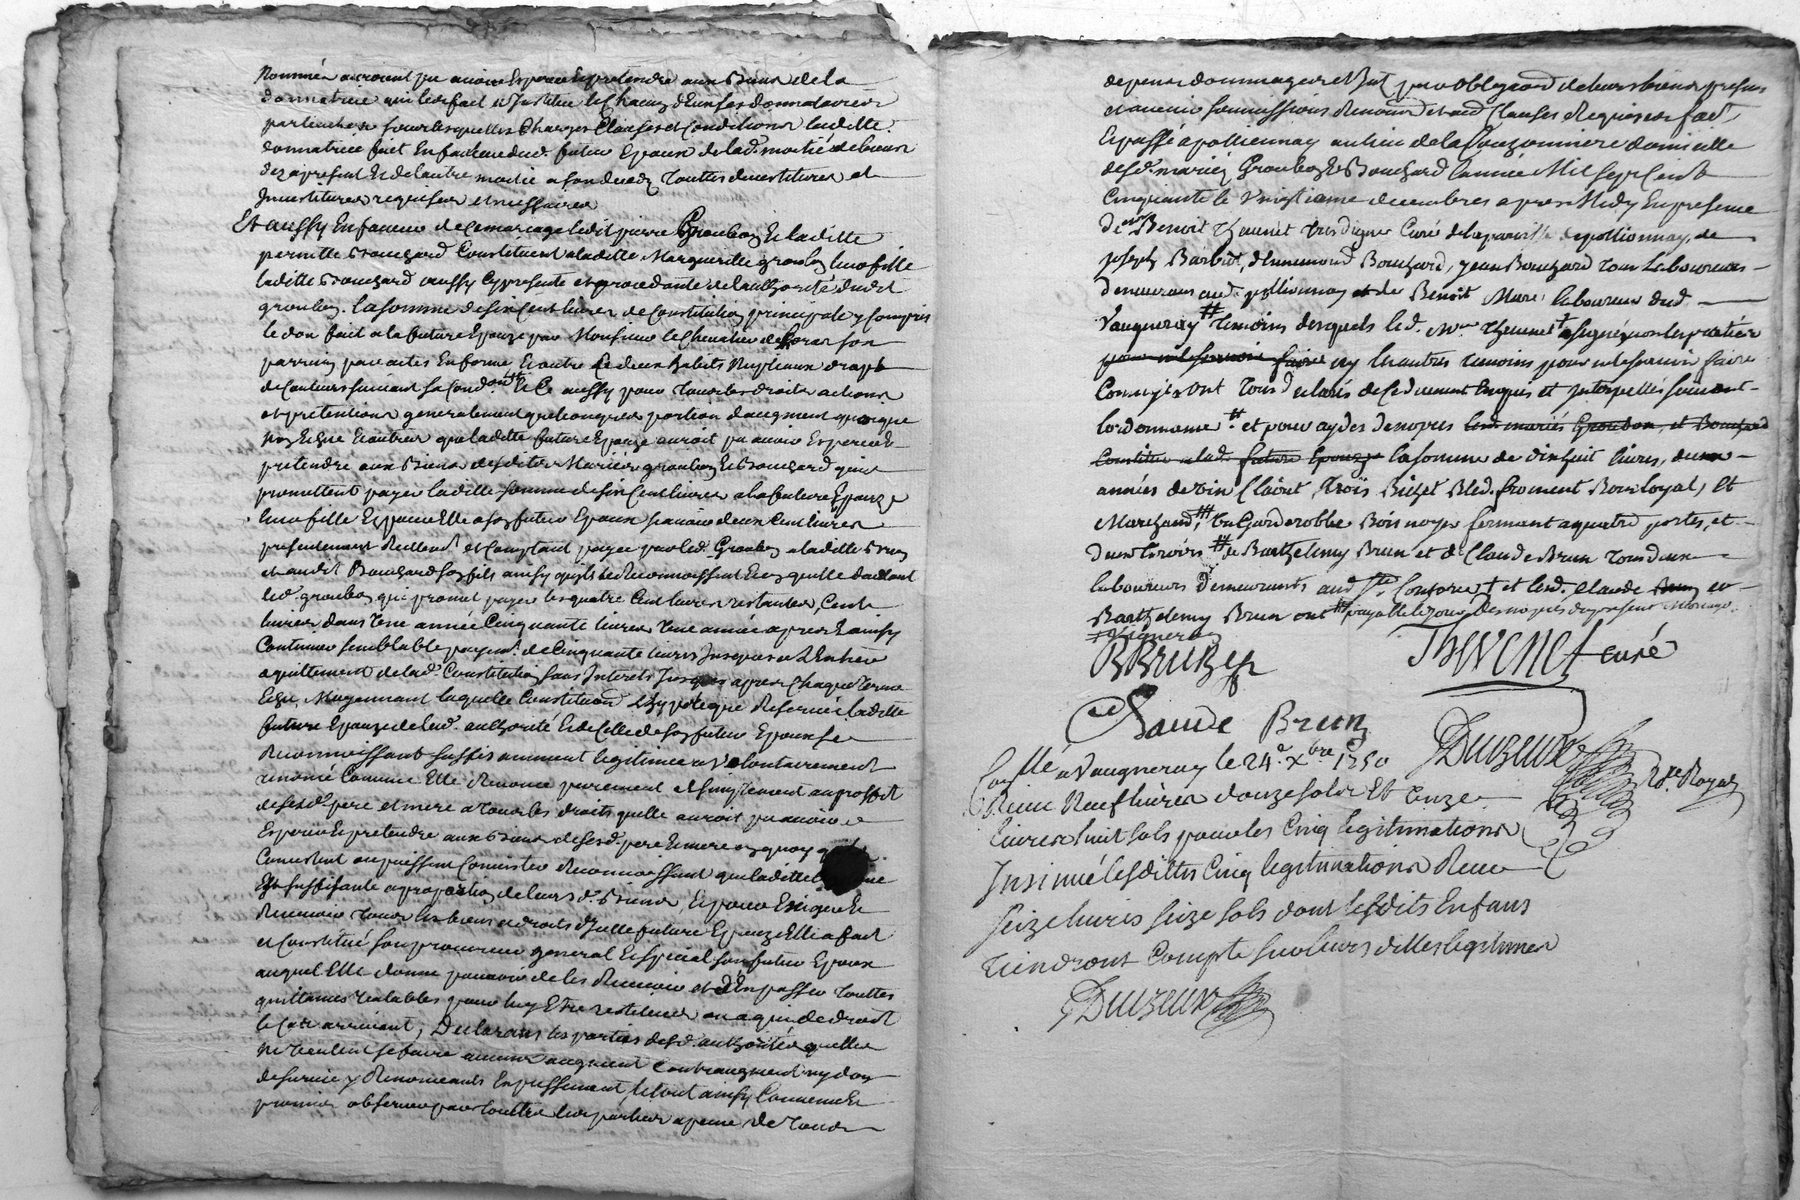 nommés auroient pu avoir Esperer Et pretendre aux Biens de la
donnatrice qui les fait et Institue Et Chacun d'Eux ses donnataires
particuliers sous lesquelles Charges Clauses et Conditions laditte
donnatrice fait En faveur dud. futur Epoux de lad. moitié de biens
dez apresent Et de l'autre moitié a son deced toutes devestitures et
Investitures requises et necessaires
Et aussy En faveur de ce mariage ledit pierre Groubon Et laditte
pernette Bouchard Constituent a laditte Marguerite groubon leur fille
laditte Bouchard aussy Cy presente et procedante de l'authorité dudt
groubon. la somme de six Cent livres de Constitution principale y Compris
le don fait a la future Epouze par Monsieur le Chevalier de son
parrain par actes En forme Et outre Ce deux habits Nuptiaux drapt
de Couleur suivant sa Cond. Et Ce aussy pour tous les droits actions
et pretentions generalement quelconques portion d'augment quoique
non Echue Et autres que laditte future Epouze auroit pu avoir Esperer Et
pretendre aux Biens desdites Mariés groubon Et Bouchard qui
promettent payer laditte somme de six Cent livres a la future Epouze
leur fille Et pour Elle a son futur Epoux sçavoir deux Cent livres
presentement Reellemt. et Comptant payer par led. Groubon a laditte Brun
et audit Bouchard son fils ainsy qu'ils le Reconnoissent Et en quitte d'autant
led. groubon qui promet payer les quatre Cent livres restantes, Cent
livres dans Une année Cinquante livres Une année apres Et ainsy
Continuer semblable payemt. de Cinquante livres Jusques a L'Entier
aquittement de lad. Constitution sans Interets Jusques apres Chaque terme
Echu Moyennant laquelle Constitution Hypoteque Reservée laditte
future Epouze de lad. authorité Et de Celle de son futur Epoux se
Reconnoissant suffisamment legitimée a Volontairement
renoncé Comme Elle Renonce purement et simplement au proffit
de sesd. pere et mere a tous les droits quelle auroit pu avoir
Esperer Et pretendre aux Biens de sesd. pere Et mere en quoy
Consistent ou puissent Consister Reconnoissant que laditte
Est suffisante a proportion de leurs d. Biens, Et pour Exiger Et
Recevoir tous les biens et droits d'Icelle future Epouze Elle a fait
et Constitué son procureur general Et special son futur Epoux
auquel Elle donne pouvoir de les Recevoir et d'En passer toutes
quittances Valables pour luy Etre restituées ou a qui de droit
le Cas arrivant, Declarant les parties desd. authorités quelles
ne Veulent se faire aucun augment Contraugment ny don
de survie y Renonceants Expressement, le tout ainsy Convenu Et
promis observer par toutes les parties a peine de tous
depens dommages et Int. par obligaon. de leurs biens presens
et avenir soumissions Renonciaons et Clauses Requises fait
Et passé a pollionnay au lieu de la domicille
desd. mariés Groubon Et Bouchard l'année Mil sept Cent
Cinquante le Vingtieme decembres apres Midy En presence
de mre Benoit Thevenet tres digne Curé de la paroisse de pollionnay, de
joseph Barbier, d'Ennemond Bouchard, jean Bouchard tous Laboureurs
demeurans aud. pollionnay et de Benoit Mure laboureur dud.
Vaugneray # temoins desquels led. Mre Thevenet † a signé non les parties
pour ce sommés faire ny les autres temoins pour ce sommés faire
Comme ils ont tous declarés de ce duement Enquis et Interpellés suivant
l'ordonnance # et pour aydes denopces lesd. mariés Groubon, et Bouchard
Constitue a lad. future Epouze la somme de dixhuit livres, deux
années de vin Clairet, trois Bichet Bled froment Bon, loyal, Et
Marchand, # Un Garderobbe Bois noyer fermant a quatre portes, et
deux tiroirs # de Barthelemy Brun et de Claude Brun tous deux
laboureurs demeurants aud. Ste Consorce † et led. Claude Brun et
Barthelemy Brun ont # payable le jour Des nopces du present Mariage.
signeront
BBRUN Thevenet curé
Claude Brun
Duvzeux
Nre. Royal
Conllé a Vaugneray le 24e Xbre 1750
Reçu Neuf livres douze sols Et onze
livres huit sols pour les Cinq legitimations
Insinué lesdittes Cinq legitimations Reçu
seize livres seize sols dont lesdits Enfans
tiendront Compte sur leurs dittes legitimes
Duvzeux